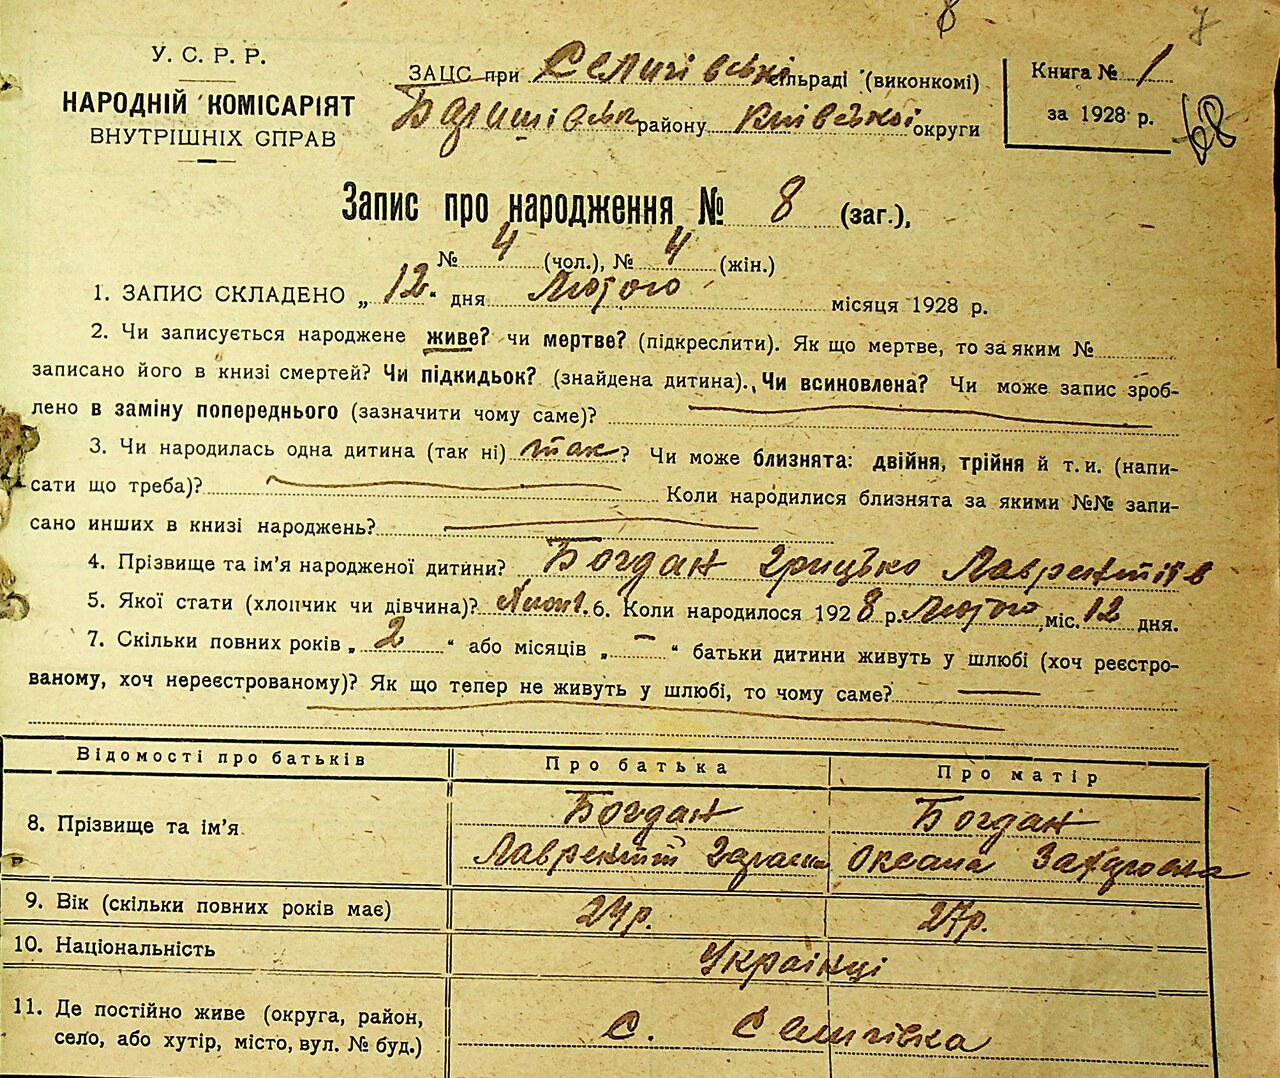 8 7
У. С. Р. Р.
НАРОДНІЙ КОМІСАРІЯТ
ВНУТРІШНІХ СПРАВ
ЗАЦС при Селичівській сільраді (виконкомі)
Баришівськ району Київської округи
Книга № 1
за 1928 р.
68
Запис про народження № 8 (заг.),
№ 4 (чол.), № 4 (жін.)
1. ЗАПИС СКЛАДЕНО „ 12 “ дня Лютого місяця 1928 р.
2. Чи записується народжене живе? чи мертве? (підкреслити). Як що мертве, то за яким №
записано його в книзі смертей? Чи підкидьок? (знайдена дитина). Чи всиновлена? Чи може запис зроб-
лено в заміну попереднього (зазначити чому саме)?
3. Чи народилась одна дитина (так ні) так? Чи може близнята: двійня, трійня й т. и. (напи-
сати що треба)? Коли народилися близнята за якими №№ запи-
сано инших в книзі народжень?
4. Прізвище та ім’я народженої дитини? Богдан Грицько Лаврентіїв
5. Якої стати (хлопчик чи дівчина)? 6. Коли народилося 1928 р. Лютого міс. 12 дня.
7. Скільки повних років „ 2 “ або місяців „ — “ батьки дитини живуть у шлюбі (хоч реєстро-
ваному, хоч нереєстрованому)? Як що тепер не живуть у шлюбі, то чому саме? —
Відомості про батьків Про батька Про матір
8. Прізвище та ім’я Богдан Богдан
Лаврентій Оксана
9. Вік (скільки повних років має) 24 р. 27 р.
10. Національність Українці
11. Де постійно живе (округа, район,
село, або хутір, місто, вул. № буд.) с. Селичівка